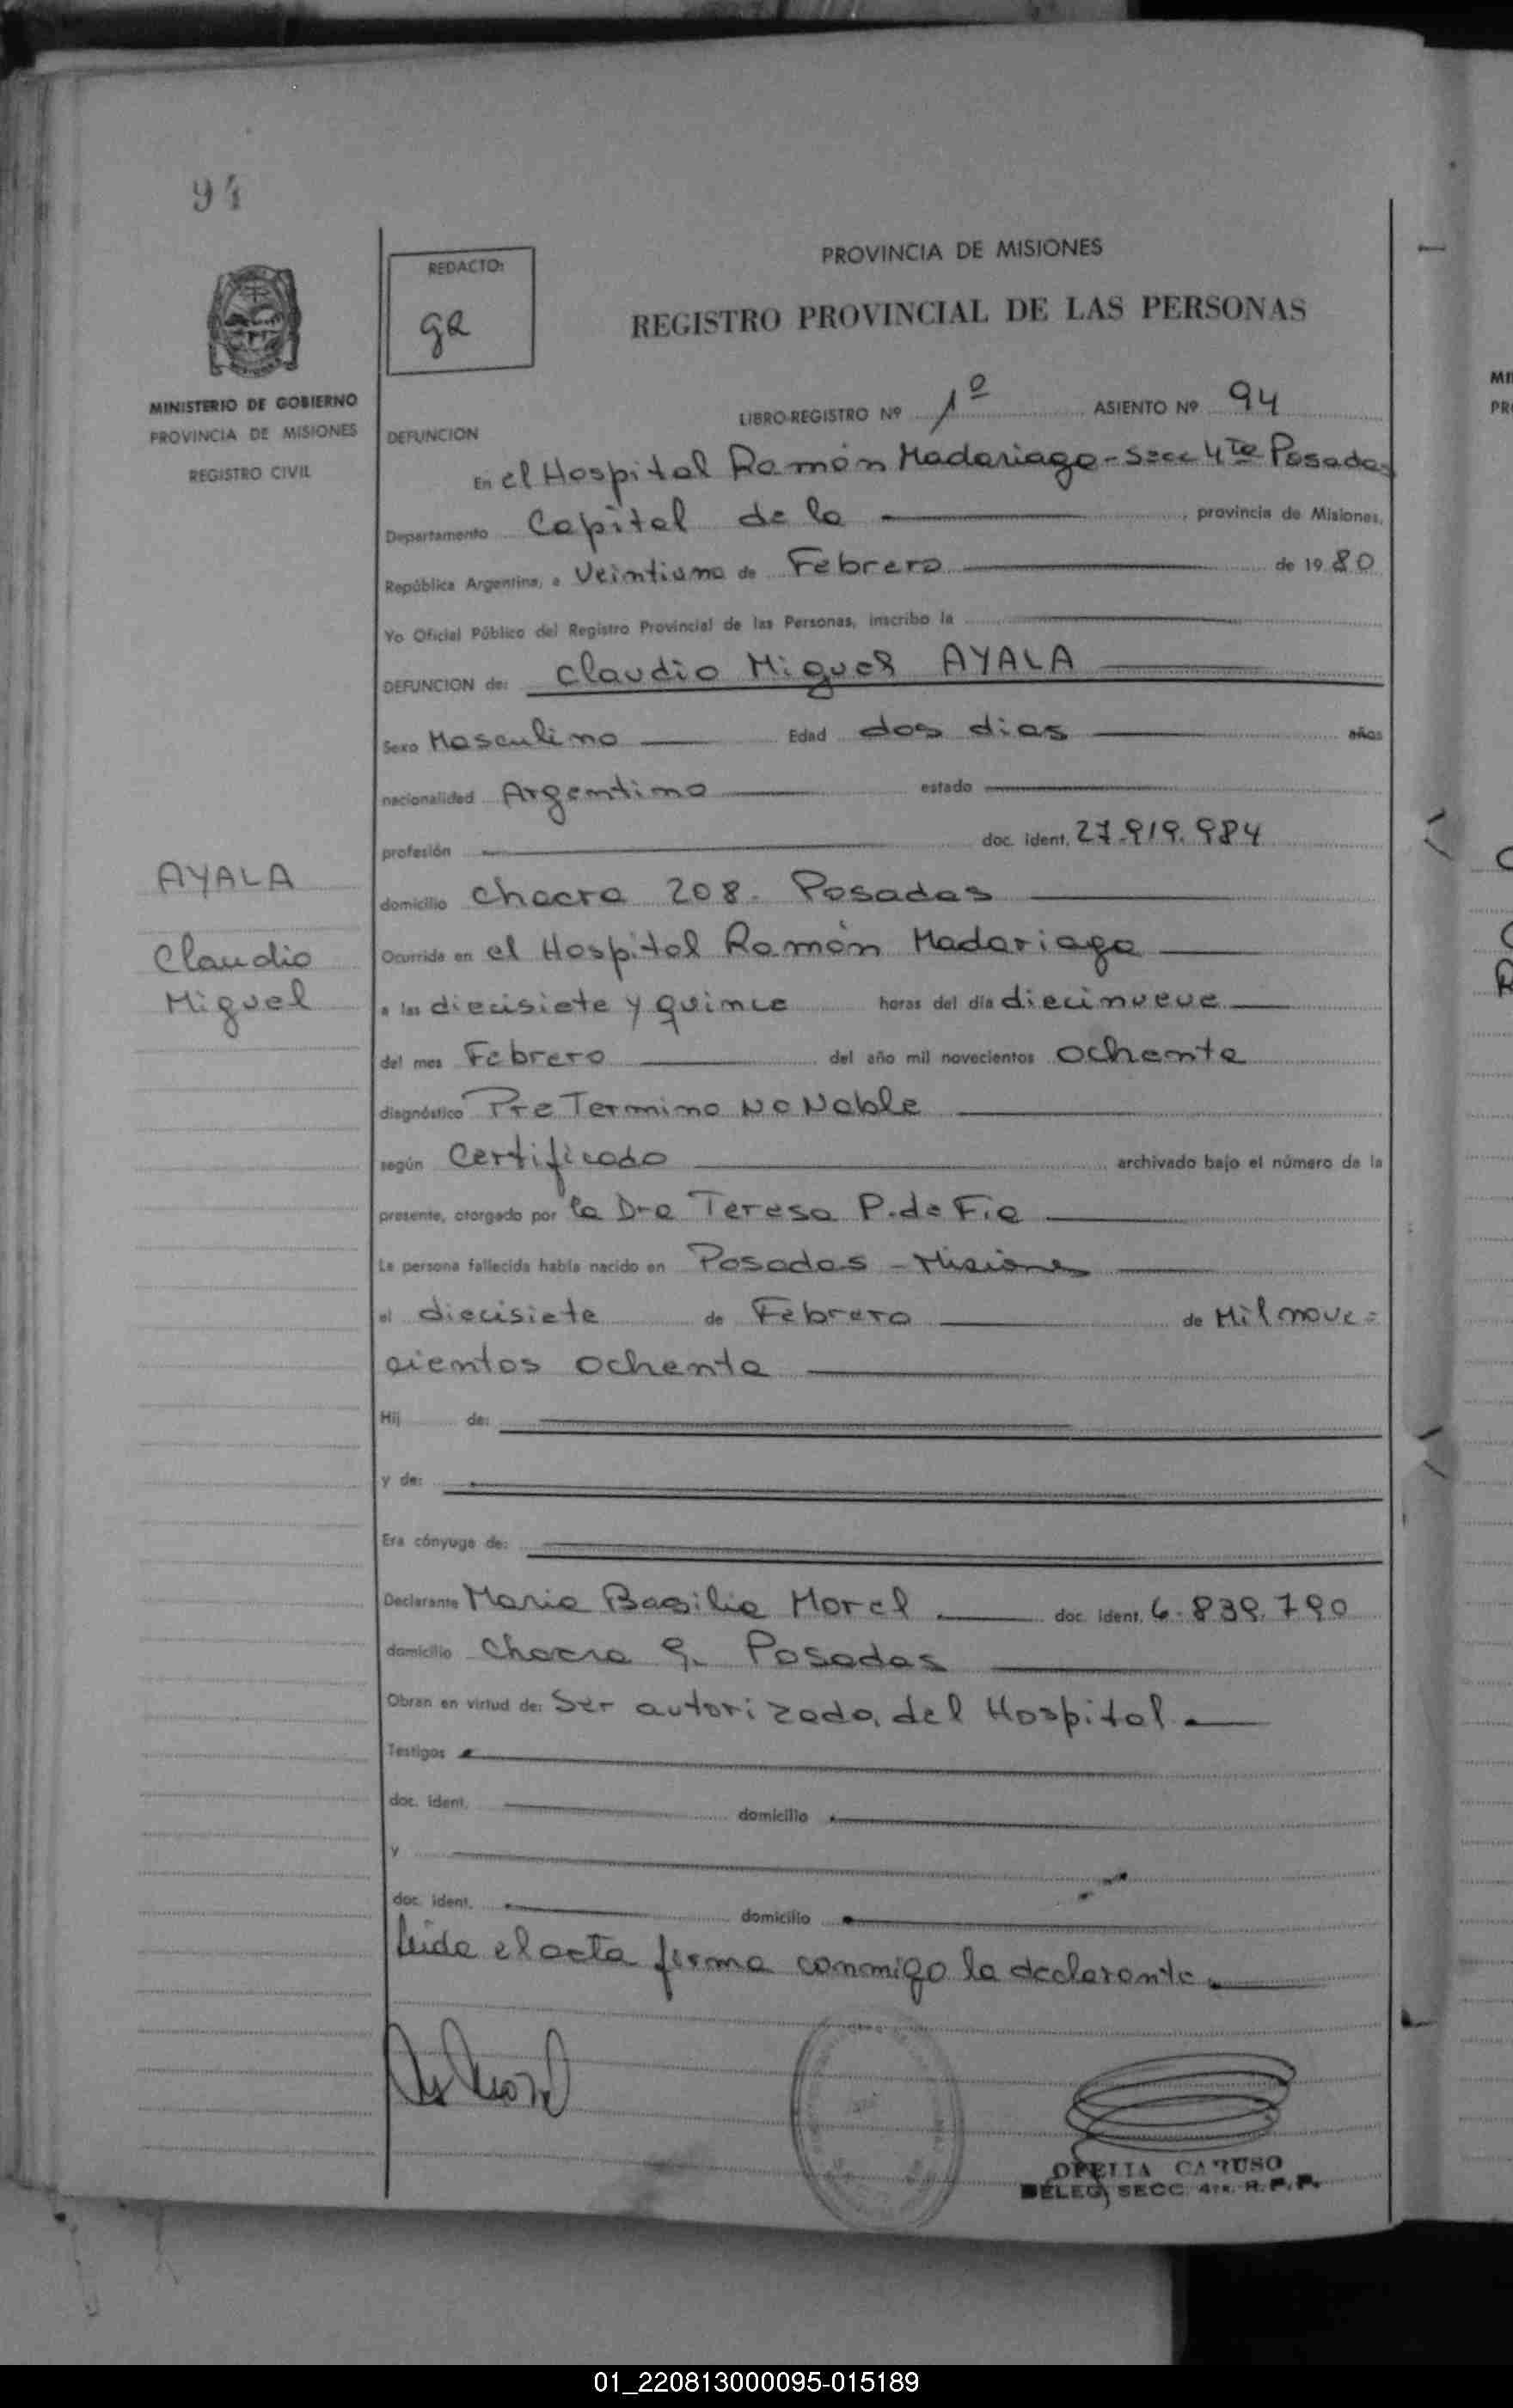 94
MINISTERIO DE GOBIERNO
PROVINCIA DE MISIONES
REGISTRO CIVIL
AYALA
Claudio
Miguel
REDACTO:
ga
PROVINCIA DE MISIONES
REGISTRO PROVINCIAL DE LAS PERSONAS
LIBRO-REGISTRO Nº 1º ASIENTO Nº 94
DEFUNCION
En el Hospital Ramón Madariaga - Secc 4ta Posadas
Departamento Capital de la , provincia de Misiones,
República Argentina, a Veintiuno de Febrero de 1980
Yo Oficial Público del Registro Provincial de las Personas, inscribo la
DEFUNCION de: Claudio Miguel AYALA
Sexo Masculino Edad dos dias años
nacionalidad Argentino estado
profesión doc. ident. 27.919.984
domicilio Chacra 208. Posadas
Ocurrida en el Hospital Ramón Madariaga
a las diecisiete y quince horas del día diecinueve
del mes Febrero del año mil novecientos ochenta
diagnóstico PreTermino No Vable
según Certificado archivado bajo el número de la
presente, otorgado por la Dra Teresa P. de Fia
La persona fallecida había nacido en Posadas - Misiones
el diecisiete de Febrero de Mil nove=
cientos ochenta
Hij de:
y de:
Era cónyuge de:
Declarante Maria Basilia Morel doc. ident. 6.839.790
domicilio Chacra 9. Posadas
Obran en virtud de: Ser autorizada, del Hospital.
Testigos
doc. ident. domicilio
y
doc. ident. domicilio
leida el acta firma conmigo la declarante
OFELIA CARUSO
DELEG SECC 4ta. R.P.P.
MI
PR
01_220813000095-015189